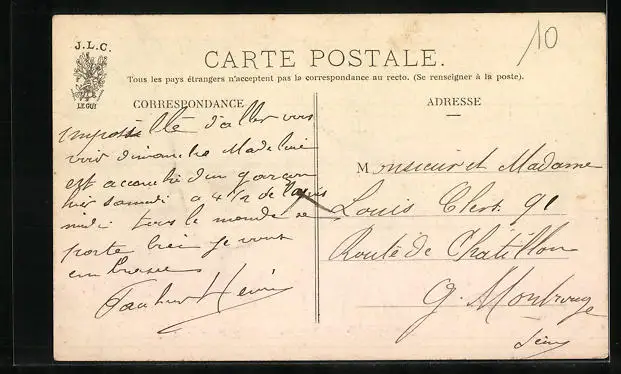 J.L.C.
LE GUI
10
CARTE POSTALE.
Tous les pays étrangers n'acceptent pas la correspondance au recto. (Se renseigner à la poste).
CORRESPONDANCE
impossibilité d'aller vous
voir dimanche Madeleine
est accouchée d'un garçon
hier samedi a 4 1/2 de l'après
midi tous le monde se
porte bien je vous
embrasse
Henri
ADRESSE
Monsieur et Madame
Louis 91
Route de Châtillon
G. Montrouge
Seine